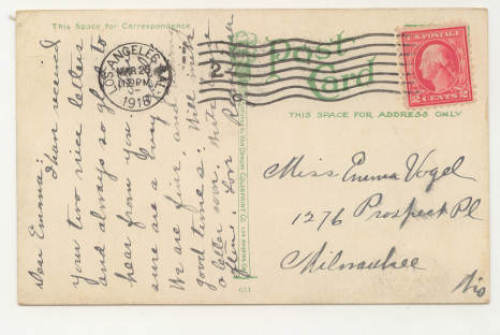 This Space for Correspondence
Dear Emma:
Have received
your two nice letters
and always so glad to
hear from you.
sure are a busy
We are fine, and
good times. Will
a letter soon. Write
Love
LOS ANGELES, CAL.
MAR 26
PM
1918
2
U.S. POSTAGE
2 CENTS 2
Post
Card
THIS SPACE FOR ADDRESS ONLY
Miss Emma Vogel
1276 Prospect Pl
Milwaukee
Wis